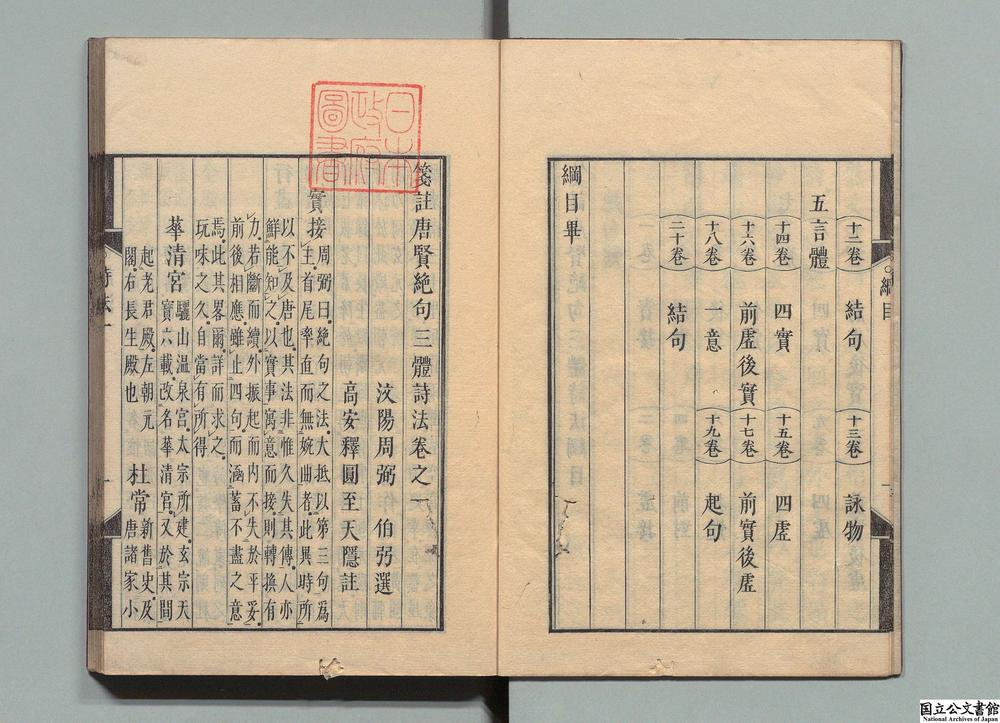 十二卷 結句 十三卷 詠物
五言體
十四卷 四實 十五卷 四虛
十六卷 前虛後實 十七卷 前實後虛
十八卷 後意 十九卷 起句
二十卷 結句
綱目畢
綱目
箋註唐賢絕句三體詩法卷之一
汶陽周弼伯弜選
高安釋圓至天隱註
實接
周弼曰絕句之法大抵以第三句爲
主首尾率直而無婉曲者此異時所
以不及唐也其法非惟久失其傳人亦
鮮能知之以實事寓意而接則轉換有
力若斷而續外振起而內不失於平妥
前後相應雖止四句而涵蓄不盡之意
焉此其畧爾詳而求之
玩味之久自當有所得
華清宮
驪山溫泉宮太宗所建玄宗天
寶六載改名華清宮又於其間
起老君殿左朝元
閣右長生殿也
杜常
新舊史及
唐諸家小
詩法一
日本
政府
圖書
国立公文書館
National Archives of Japan